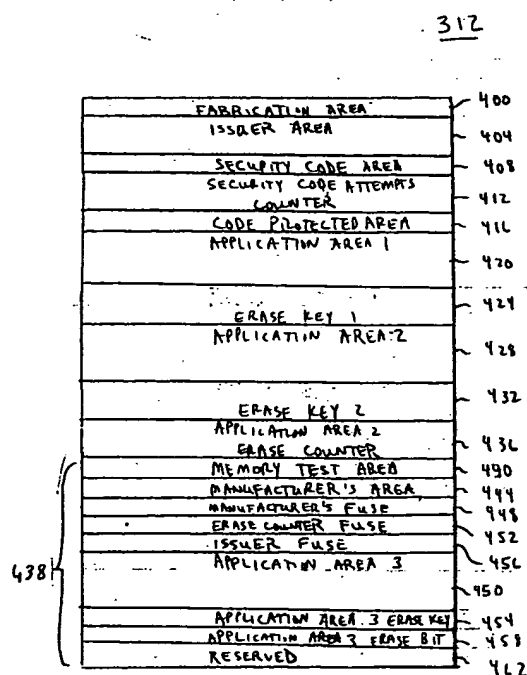 312
FABRICATION AREA 400
ISSUER AREA 404
SECURITY CODE AREA 408
SECURITY CODE ATTEMPTS
COUNTER 412
CODE PROTECTED AREA 416
APPLICATION AREA 1 420
424
ERASE KEY 1
APPLICATION AREA 2 428
432
ERASE KEY 2
APPLICATION AREA 2
ERASE COUNTER 436
MEMORY TEST AREA 490
MANUFACTURER'S AREA 444
MANUFACTURER'S FUSE 948
ERASE COUNTER FUSE 452
ISSUER FUSE 456
APPLICATION AREA 3
438
450
APPLICATION AREA 3 ERASE KEY 454
APPLICATION AREA 3 ERASE BIT 458
RESERVED 462